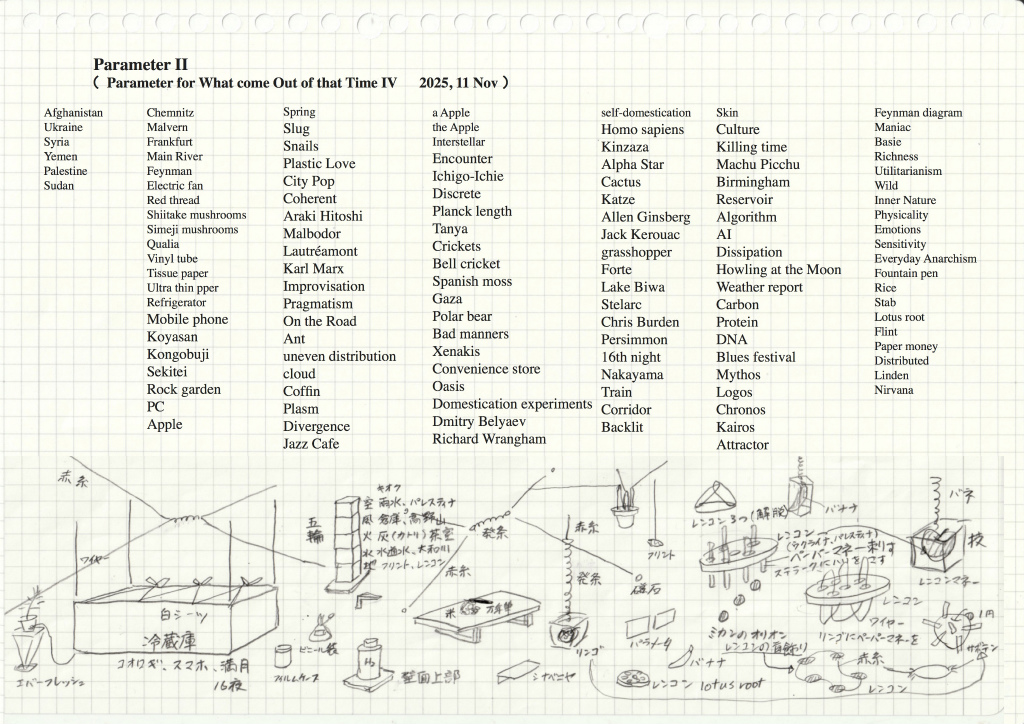 Parameter II
( Parameter for What come Out of that Time IV 2025, 11 Nov )
Afghanistan
Ukraine
Syria
Yemen
Palestine
Sudan
Chemnitz
Malvern
Frankfurt
Main River
Feynman
Electric fan
Red thread
Shiitake mushrooms
Simeji mushrooms
Qualia
Vinyl tube
Tissue paper
Ultra thin pper
Refrigerator
Mobile phone
Koyasan
Kongobuji
Sekitei
Rock garden
PC
Apple
Spring
Slug
Snails
Plastic Love
City Pop
Coherent
Araki Hitoshi
Malbodor
Lautréamont
Karl Marx
Improvisation
Pragmatism
On the Road
Ant
uneven distribution
cloud
Coffin
Plasm
Divergence
Jazz Cafe
a Apple
the Apple
Interstellar
Encounter
Ichigo-Ichie
Discrete
Planck length
Tanya
Crickets
Bell cricket
Spanish moss
Gaza
Polar bear
Bad manners
Xenakis
Convenience store
Oasis
Domestication experiments
Dmitry Belyaev
Richard Wrangham
self-domestication
Homo sapiens
Kinzaza
Alpha Star
Cactus
Katze
Allen Ginsberg
Jack Kerouac
grasshopper
Forte
Lake Biwa
Stelarc
Chris Burden
Persimmon
16th night
Nakayama
Train
Corridor
Backlit
Skin
Culture
Killing time
Machu Picchu
Birmingham
Reservoir
Algorithm
AI
Dissipation
Howling at the Moon
Weather report
Carbon
Protein
DNA
Blues festival
Mythos
Logos
Chronos
Kairos
Attractor
Feynman diagram
Maniac
Basie
Richness
Utilitarianism
Wild
Inner Nature
Physicality
Emotions
Sensitivity
Everyday Anarchism
Fountain pen
Rice
Stab
Lotus root
Flint
Paper money
Distributed
Linden
Nirvana
赤糸
ワイヤー
白シーツ
冷蔵庫
コオロギ、スマホ、満月
16夜
エバーフレッシュ
五輪
キオク
空 雨水、パレスティナ
風 倉庫、高野山
火 灰(カトリ)茶室
水 水道水、大和川
地 フリント、レンコン
赤糸
発条
米 万年筆
ビニール袋
フィルムケース
H₂
壁面上部
シナベニヤ
赤糸
発条
リンゴ
フリント
磁石
パラメータ
バナナ
レンコン lotus root
レンコン 3つ(解脱)
バナナ
レンコン
(ウクライナ、パレスティナ)
ペーパーマネー刺す
ステラークにハリをさす
ミカンのオリオン
レンコンの首飾り
レンコン
ワイヤー
リンゴにペーパーマネーを
赤糸
レンコン
バネ
枝
レンコンマネー
1円
サボテン